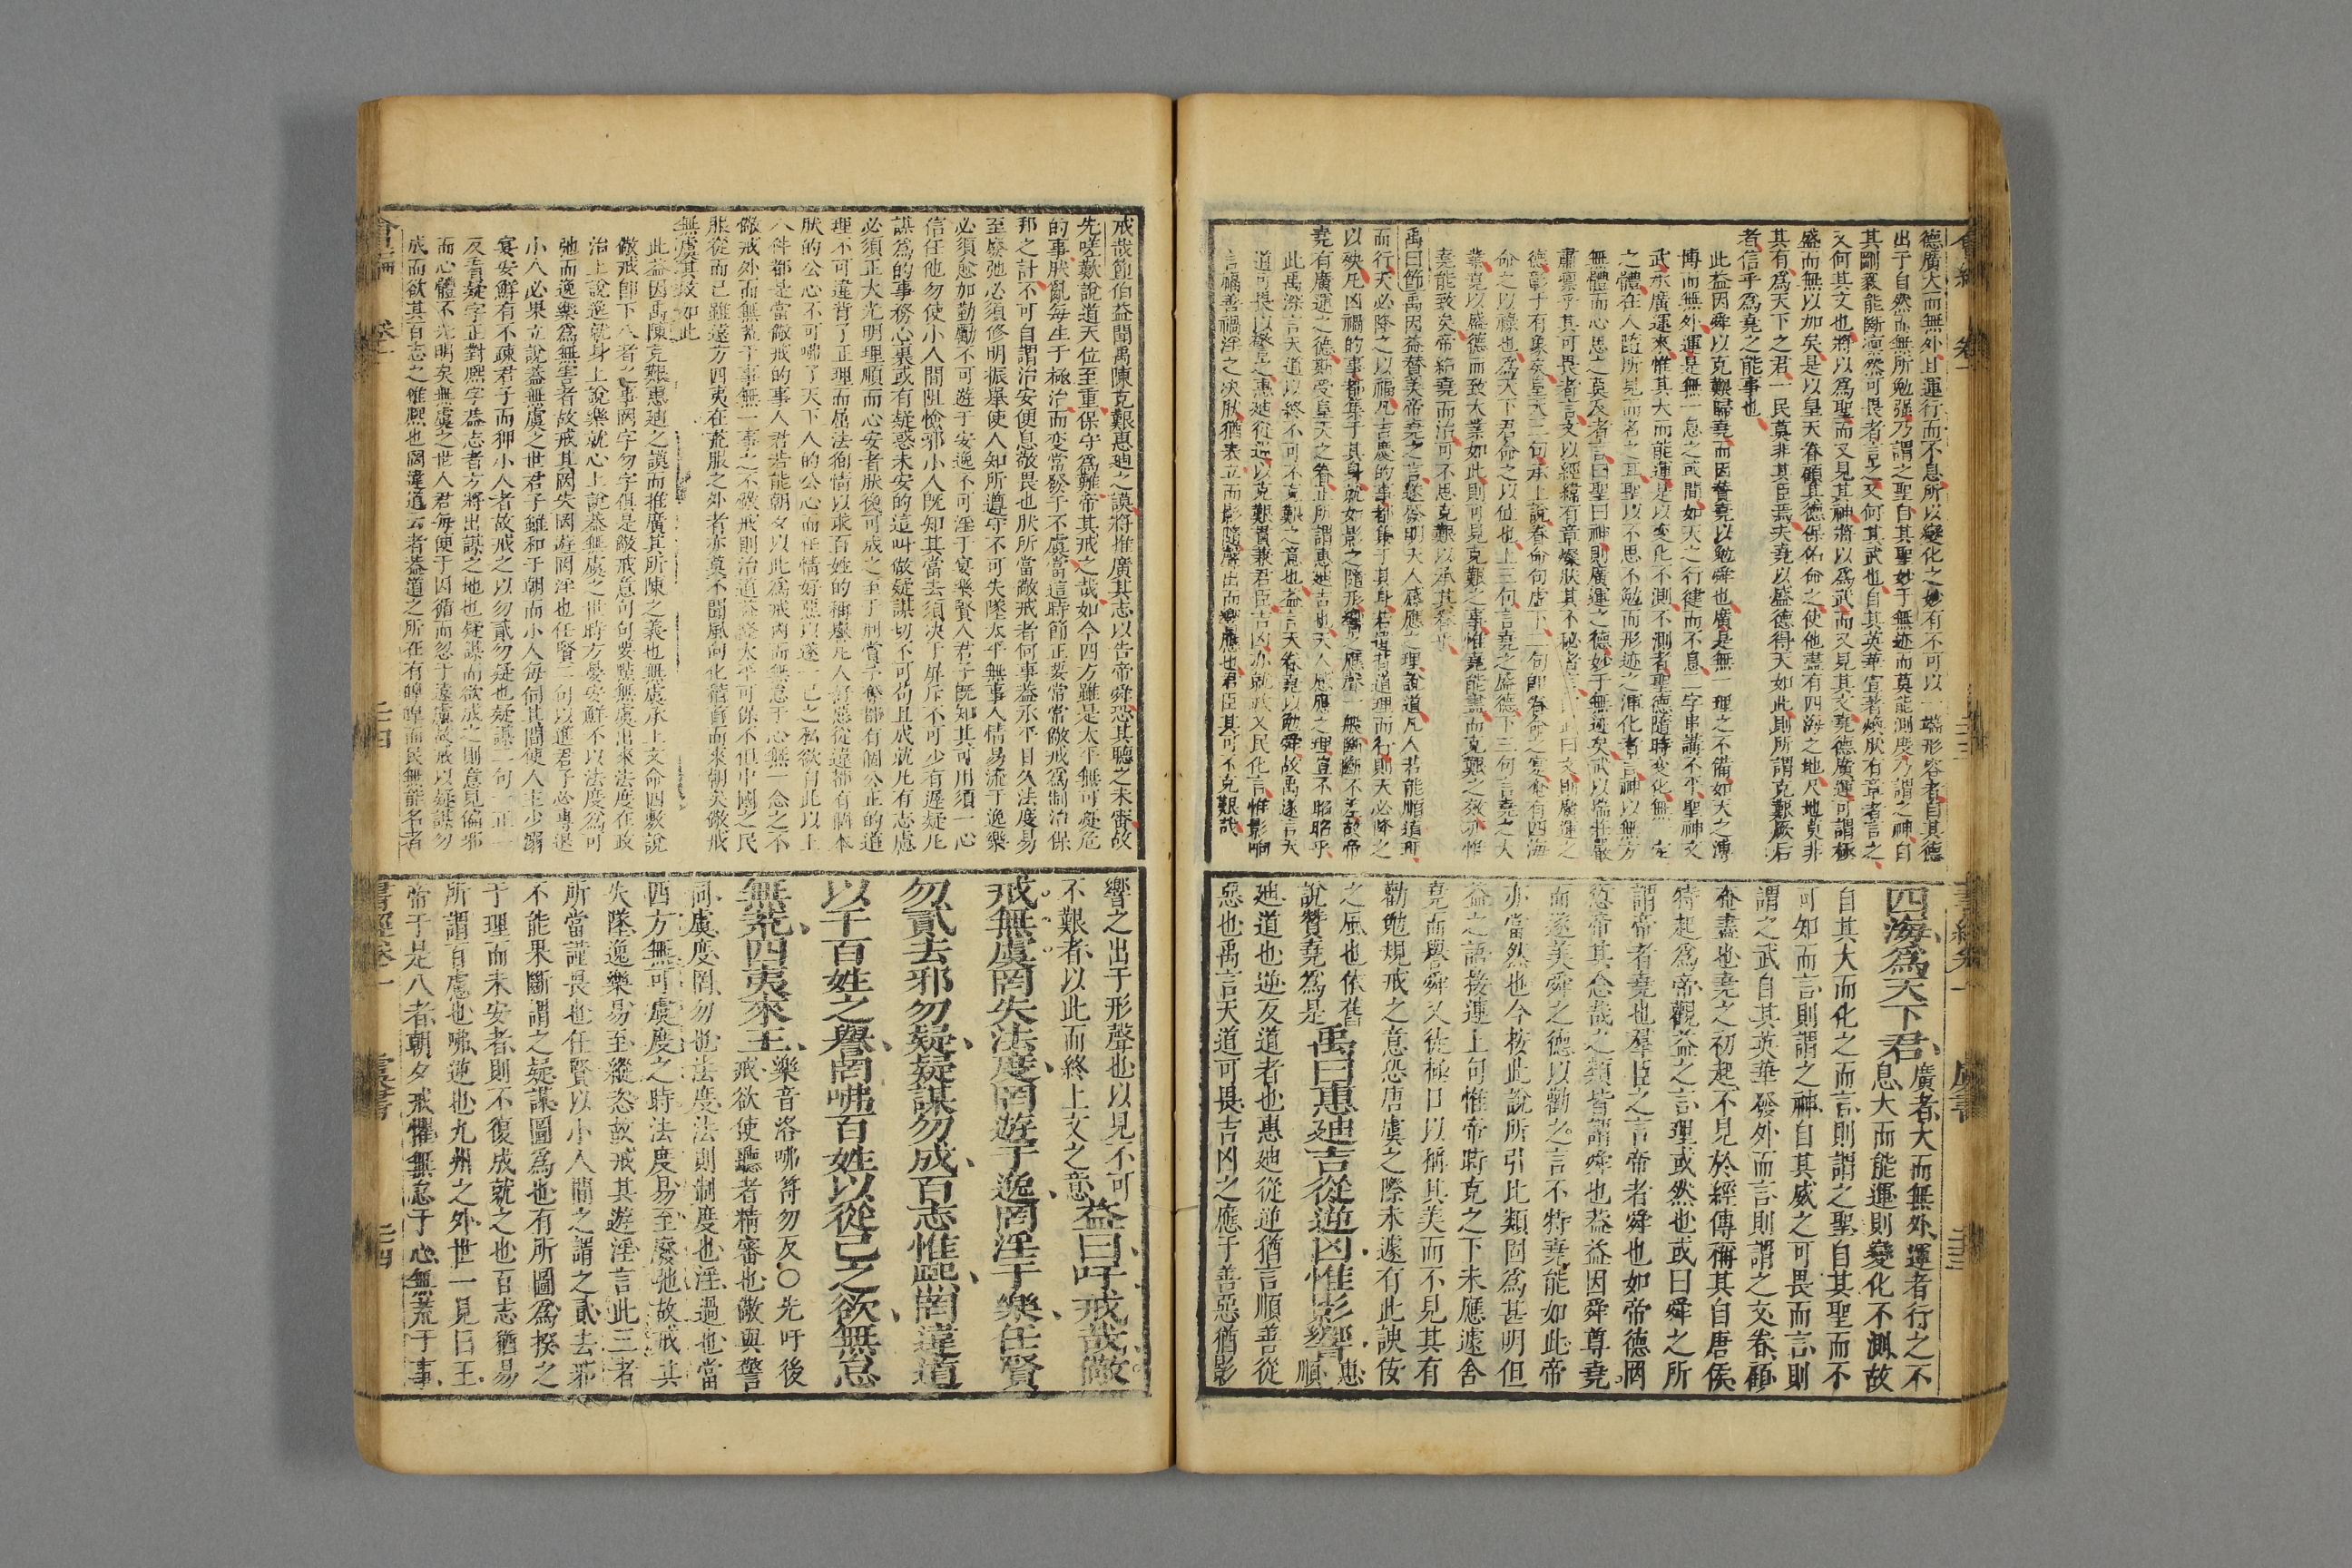 德廣大而無外且運行而不息所以變化之妙有不可以一端形容者自其德
出于自然而無所勉强乃謂之聖自其聖妙于無迹而莫能測度乃謂之神自
其剛毅能斷凜然可畏者言之又何其武也自其英華宣著煥肰有章者言之
又何其文也將以為聖而又見其神將以為武而又見其文堯德廣運可謂極
盛而無以加矣是以皇天眷顧其德保佑命之使他盡有四海之地尺地莫非
其有為天下之君一民莫非其臣焉夫堯以盛德得天如此則所謂克艱厥后
者信乎為堯之能事也
此益因舜以克艱歸堯而因替堯以勉舜也廣是無一理之不備如天之溥
博而無外運是無一息之或間如天之行健而不息二字串講不平聖神文
武承廣運來惟其大而能運是以變化不測不測者聖德隨時變化無一定
之體在人隨所見而名之耳聖以不思不勉而形迹之渾化者言神以無方
無體而心思之莫及者言曰聖曰神則廣運之德妙于無迹矣武以端莊嚴
肅凜乎其可畏者言文以經緯有章燦肰其不秘者言曰武曰文則廣運之
德彰于有象矣皇天二句承上說眷命句虛下二句卽眷命之實奄有四海
命之以祿也為天下君命之以位也上三句言堯之盛德下三句言堯之大
業堯以盛德而致大業如此則可見克艱之事惟堯能盡而克艱之效亦惟
堯能致矣帝紹堯而治可不思克艱以承其眷乎
禹曰節禹因益替美帝堯之言遂發明天人感應之理說道凡人若能順道理
而行天必降之以福凡吉慶的事都集于其身若悖背道理而行則天必降之
以殃凡凶禍的事都集于其身就如影之隨形響之應聲一般斷斷不差故帝
堯有廣運之德斯受皇天之眷正所謂惠廸吉也天人感應之理豈不昭昭乎
此禹深言天道以終不可不克艱之意也益言天眷堯以勉舜故禹遂言天
道可畏以警之惠廸從逆以克艱貫兼君臣吉凶亦就政乂民化言惟影响
言福善禍淫之決肰猶表立而影隨聲出而響應也君臣其可不克艱哉
四海為天下君廣者大而無外運者行之不
息大而能運則變化不測故
自其大而化之而言則謂之聖自其聖而不
可知而言則謂之神自其威之可畏而言則
謂之武自其英華發外而言則謂之文眷顧
奄盡也堯之初起不見於經傳稱其自唐侯
特起為帝觀益之言理或然也或曰舜之所
謂帝者堯也羣臣之言帝者舜也如帝德罔
愆帝其念哉之類皆謂舜也葢益因舜尊堯
而遂美舜之德以勸之言不特堯能如此帝
亦當然也今按此說所引比類固為甚明但
益之語接連上句惟帝時克之下未應遽舍
堯而譽舜又徒極口以稱其美而不見其有
勸勉規戒之意恐唐虞之際未遽有此諛佞
之風也依舊
說贊堯為是禹曰惠廸吉從逆凶惟影響惠
順
廸道也逆反道者也惠廸從逆猶言順善從
惡也禹言天道可畏吉凶之應于善惡猶影
戒哉節伯益聞禹陳克艱惠廸之謨將推廣其志以告帝舜恐其聽之未審故
先嗟歎說道天位至重保守為難帝其戒之哉如今四方雖是太平無可疑危
的事肰亂每生于極治而变常發于不虞當這時節正要常常儆戒為制治保
邦之計不可自謂治安便息敬畏也肰所當儆戒者何事葢承平日久法度易
至廢弛必須修明振舉使人知所遵守不可失墜太平無事人情易流于逸樂
必須愈加勤勵不可遊于安逸不可淫于宴樂賢人君子既知其可用須一心
信任他勿使小人間阻憸邪小人既知其當去須决于屏斥不可少有遲疑凡
謀為的事務心裏或有疑惑未安的這叫做疑謀切不可苟且成就凡有志慮
必須正大光明理順而心安者肰後可成之至于刑賞予奪都有個公正的道
理不可違背了正理而屈法徇情以求百姓的稱譽凡人好惡從違都有個本
肰的公心不可咈了天下人的公心而任情好惡以遂一己之私欲自此以上
八件都是當儆戒的事人君若能朝夕以此為戒內而無怠于心無一念之不
儆戒外而無荒于事無一事之不儆戒則治道益隆太平可保不但中國之民
服從而已雖遠方四夷在荒服之外者亦莫不聞風向化稽首而來朝矣儆戒
無虞其效如此
此益因禹陳克艱惠廸之謨而推廣其所陳之義也無虞承上文命四敷說
儆戒卽下八者之事罔字勿字俱是儆戒意句句要點無虞出來法度在政
治上說逸就身上說樂就心上說葢無虞之世時方憂安鮮不以法度為可
弛而逸樂為無害者故戒其罔失罔遊罔淫也任賢二句以進君子必專退
小人必果立說葢無虞之世君子雖和于朝而小人每伺其間使人主少溺
宴安鮮有不疎君子而狎小人者故戒之以勿貳勿疑也疑謀二句一正一
反看疑字正對熈字葢志者方將出謀之地也疑謀而欲成之則意見偏邪
而心體不光明矣無虞之世人君每便于因循而忽于遠慮故戒以疑謀勿
成而欲其百志之惟熈也罔違道云者葢道之所在有皡皡而民無能名者
響之出于形聲也以見不可
不艱者以此而終上文之意益曰吁戒哉儆
戒無虞罔失法度罔遊于逸罔淫于樂任賢
勿貳去邪勿疑疑謀勿成百志惟熈罔違道
以干百姓之譽罔咈百姓以從己之欲無怠
無荒四夷來王樂音洛咈符勿反○先吁後
戒欲使聽者精審也儆與警
同虞度罔勿也法度法則制度也淫過也當
四方無可虞度之時法度易至廢弛故戒其
失墜逸樂易至縱恣故戒其遊淫言此三者
所當謹畏也任賢以小人間之謂之貳去邪
不能果斷謂之疑謀圖為也有所圖為揆之
于理而未安者則不復成就之也百志猶易
所謂百慮也咈逆也九州之外世一見曰王
帝于是八者朝夕戒懼無怠于心無荒于事
會編 卷一 二十四
書經卷一 虞書 二十四